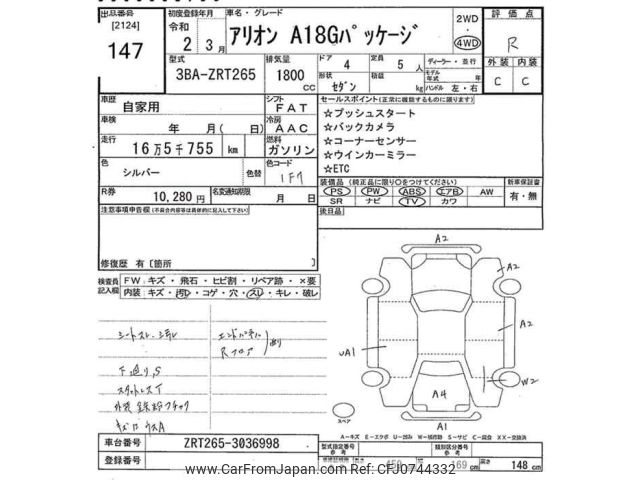 出品番号
[2124]
147
初度登録年月
令和
2 3月
車名・グレード
アリオン A18Gパッケージ
2WD
・
4WD
評価点
R
外装 内装
C C
型式
3BA-ZRT265
排気量
1800
cc
ドア 4
形状 セダン
定員 5 人
積載 kg
ディーラー・並行
モデル年式 年
ハンドル 左・右
車歴 自家用
シフト FAT
車検 年 月(日)
冷房 AAC
走行 16万5千755 km
燃料 ガソリン
色 シルバー
色替
色コード 1F7
R券 10,280 円
名変通知期限 月 日
セールスポイント(正常に機能するものに限ります)
☆プッシュスタート
☆バックカメラ
☆コーナーセンサー
☆ウインカーミラー
☆ETC
装備品(純正品に限り○をつけてください)
PS PW ABS エアB AW
SR ナビ TV カワ
新車保証書
有・無
後日品
注意事項申告欄(不具合内容等は具体的に記入して下さい)
修復歴 有[箇所 ]
検査員記入欄
FW キズ・飛石・ヒビ割・リペア跡・×要
内装 キズ・汚レ・コゲ・穴・スレ・キレ・破レ
エンドパネル
Rフロア
下廻りS
スタットレスT
外装 鉄粉
A2
A2
A2
UA1
W2
A4
A1
スペア
A-キズ E-エクボ U-凹み W-補修跡 S-サビ C-腐食 XX-交換済
車台番号 ZRT265-3036998
登録番号
型式指定番号 参考
類別区分番号 参考
459
169 cm
高さ 148 cm
www.CarFromJapan.com - CFJ0744332